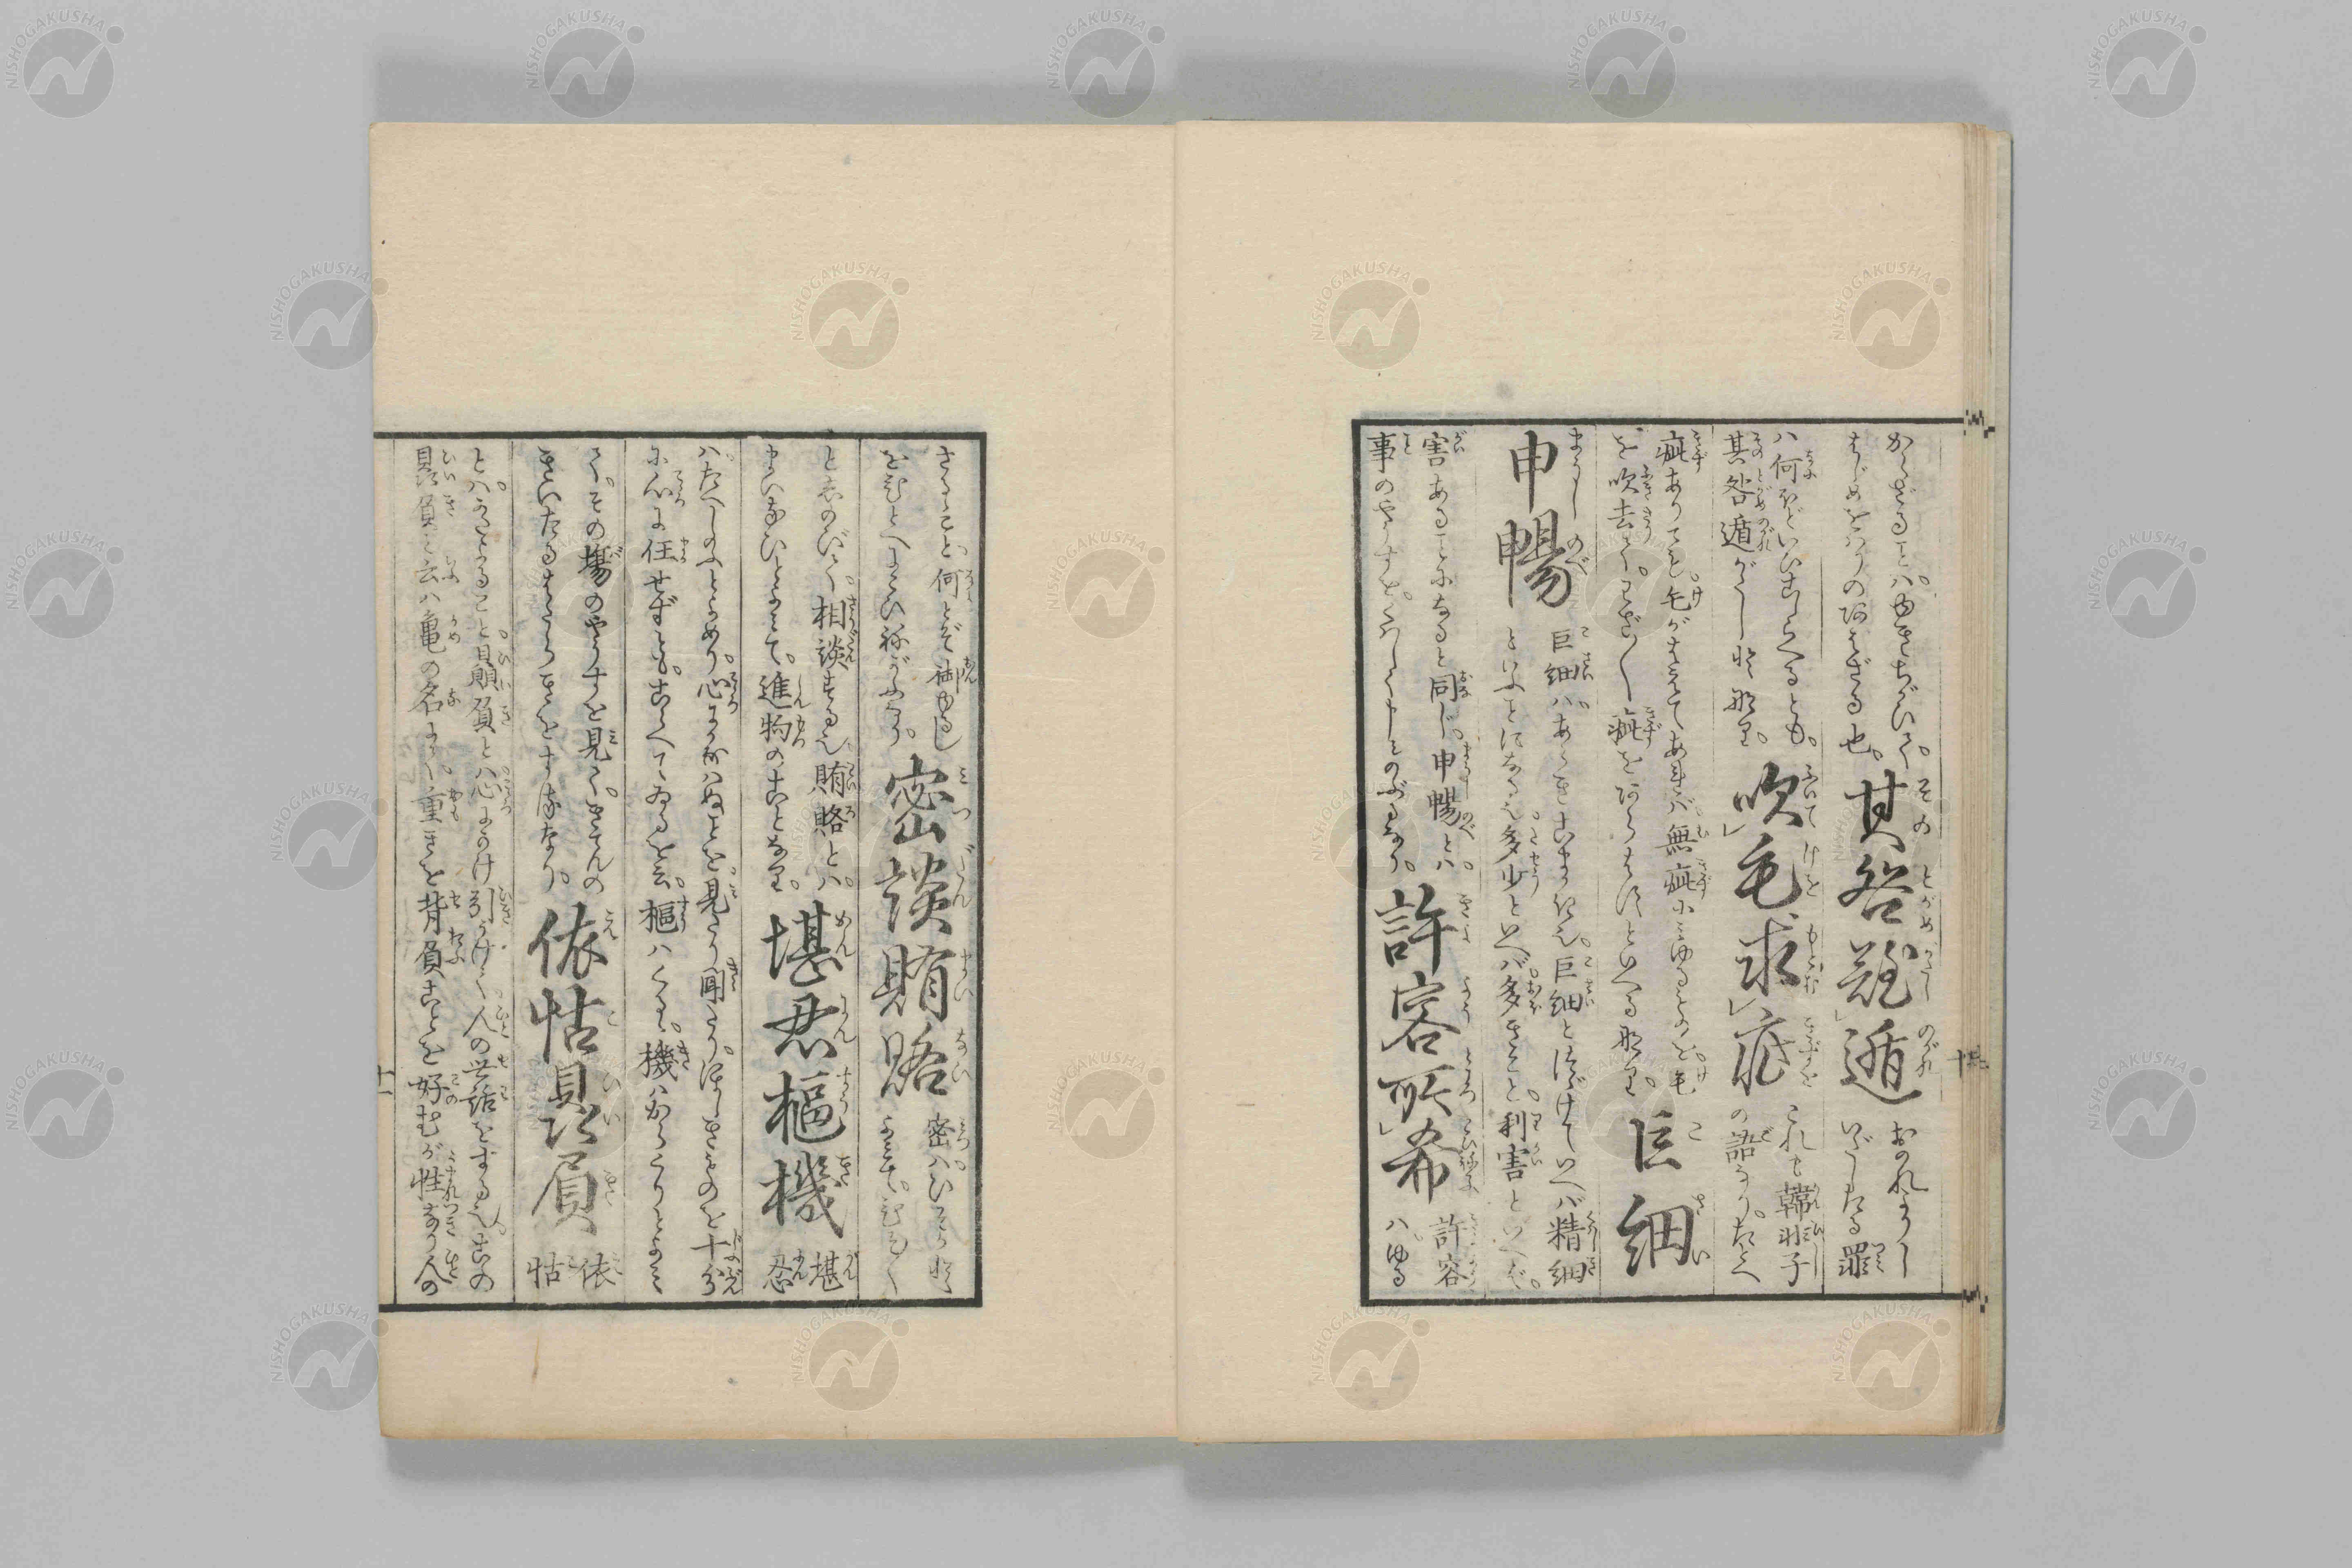 からざるとハ。ゆきちがひて。
はじめをハりのあはざる也。
其咎難遁
おのれより
いだしたる罪
ハ何ほどいひこしらへるとも。
其咎遁がたし
吹毛求疵
これも韓非子
の語なり。たとへ
疵ありても。毛がはえてあれバ無疵にみゆるものを。毛
を吹去て。わざ〳〵疵をあらはすといへる
巨細
申暢
巨細ハ。あらきこまか也。巨細とつゞけていへバ精細
といふことになる也。多少といへバ多きこと。利害といへば。
害あることになると同じ。申暢とハ。
事のやうすを。くハしく申しのぶるなり。
許容所希
許容
ハ。ゆる
さるゝこと。何とぞ御ゆるし
をひとへにこひねがふなり。
密談賄賂
密ハ。ひそか
としのびて。相談する也。賄賂とハ。
まいないとよみて。進物のことなり。
堪忍樞機
堪
忍
ハ。たへしのぶとよめり。心にかなハぬことを。見たり聞たり。ほしきものを十分
に心に任せずとも。こらへてゐるを云。樞ハくるゝ。機ハからくりとよみ
て。その場のやうすを見て。きてんの
きいたるはたらきをするなり。
依怙贔屓
依
怙
とハ。かたよること。贔屓とハ心にかけ引かけて人の世話をする也。この
贔屓と云ハ亀の名にて。重きを背負ことを好むが性なり。人の
十一
NISHOGAKUSHA